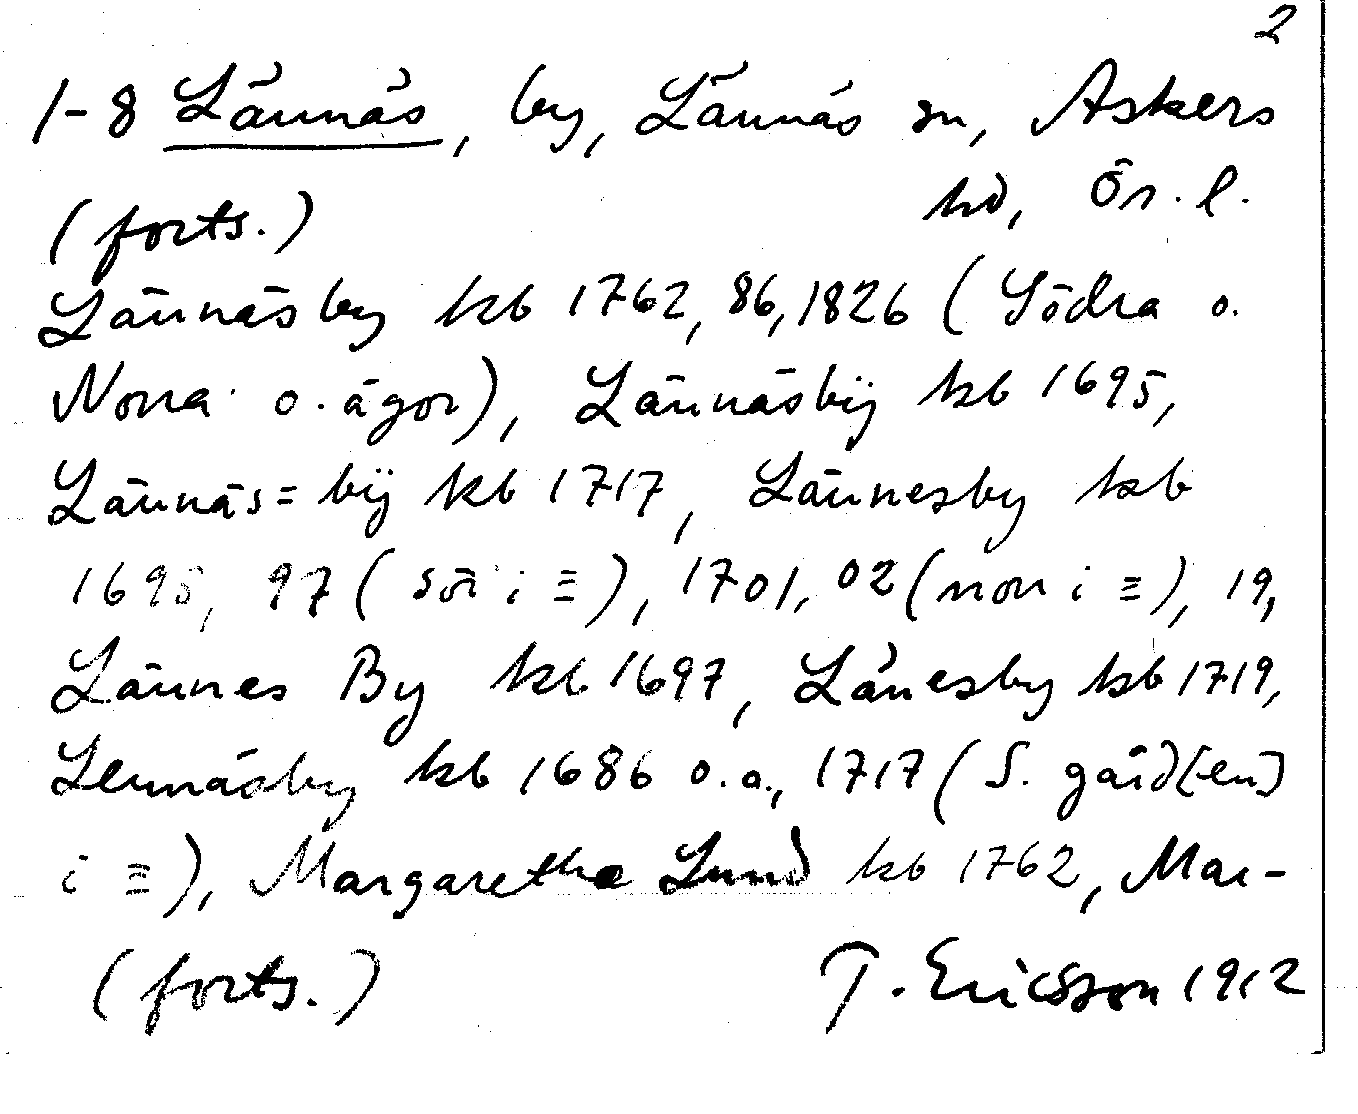 2
1-8 Lännäs, by, Lännäs sn, Askers
(forts.) hd, Ör. l.
Lännäsby kb 1762, 86, 1826 (Södra o.
Norra o. ägor), Lännäsbÿ kb 1695,
Lännäs=bÿ kb 1717, Lännesby kb
1695, 97 (sör i ≡), 1701, 02 (norr i ≡), 19,
Lännes By kb 1697, Länesby kb 1719,
Lennäsby kb 1686 o.a., 1717 (S. gård[en]
i ≡), Margarethe Lund kb 1762, Mar-
(forts.) T. Ericsson 1912